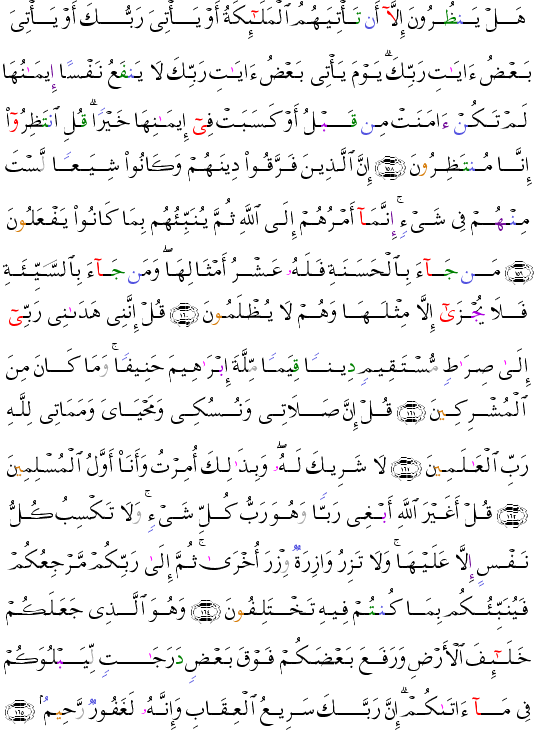 هَلْ يَنظُرُونَ إِلَّآ أَن تَأْتِيَهُمُ ٱلْمَلَـٰٓئِكَةُ أَوْ يَأْتِىَ رَبُّكَ أَوْ يَأْتِىَ
بَعْضُ ءَايَـٰتِ رَبِّكَ ۗ يَوْمَ يَأْتِى بَعْضُ ءَايَـٰتِ رَبِّكَ لَا يَنفَعُ نَفْسًا إِيمَـٰنُهَا
لَمْ تَكُنْ ءَامَنَتْ مِن قَبْلُ أَوْ كَسَبَتْ فِىٓ إِيمَـٰنِهَا خَيْرًا ۗ قُلِ ٱنتَظِرُوٓا۟
إِنَّا مُنتَظِرُونَ ١٥٨ إِنَّ ٱلَّذِينَ فَرَّقُوا۟ دِينَهُمْ وَكَانُوا۟ شِيَعًا لَّسْتَ
مِنْهُمْ فِى شَىْءٍ ۚ إِنَّمَآ أَمْرُهُمْ إِلَى ٱللَّهِ ثُمَّ يُنَبِّئُهُم بِمَا كَانُوا۟ يَفْعَلُونَ
١٥٩ مَن جَآءَ بِٱلْحَسَنَةِ فَلَهُۥ عَشْرُ أَمْثَالِهَا ۖ وَمَن جَآءَ بِٱلسَّيِّئَةِ
فَلَا يُجْزَىٰٓ إِلَّا مِثْلَهَا وَهُمْ لَا يُظْلَمُونَ ١٦٠ قُلْ إِنَّنِى هَدَىٰنِى رَبِّىٓ
إِلَىٰ صِرَٰطٍ مُّسْتَقِيمٍ دِينًا قِيَمًا مِّلَّةَ إِبْرَٰهِيمَ حَنِيفًا ۚ وَمَا كَانَ مِنَ
ٱلْمُشْرِكِينَ ١٦١ قُلْ إِنَّ صَلَاتِى وَنُسُكِى وَمَحْيَاىَ وَمَمَاتِى لِلَّهِ
رَبِّ ٱلْعَـٰلَمِينَ ١٦٢ لَا شَرِيكَ لَهُۥ ۖ وَبِذَٰلِكَ أُمِرْتُ وَأَنَا۠ أَوَّلُ ٱلْمُسْلِمِينَ
١٦٣ قُلْ أَغَيْرَ ٱللَّهِ أَبْغِى رَبًّا وَهُوَ رَبُّ كُلِّ شَىْءٍ ۚ وَلَا تَكْسِبُ كُلُّ
نَفْسٍ إِلَّا عَلَيْهَا ۚ وَلَا تَزِرُ وَازِرَةٌ وِزْرَ أُخْرَىٰ ۚ ثُمَّ إِلَىٰ رَبِّكُم مَّرْجِعُكُمْ
فَيُنَبِّئُكُم بِمَا كُنتُمْ فِيهِ تَخْتَلِفُونَ ١٦٤ وَهُوَ ٱلَّذِى جَعَلَكُمْ
خَلَـٰٓئِفَ ٱلْأَرْضِ وَرَفَعَ بَعْضَكُمْ فَوْقَ بَعْضٍ دَرَجَـٰتٍ لِّيَبْلُوَكُمْ
فِى مَآ ءَاتَىٰكُمْ ۗ إِنَّ رَبَّكَ سَرِيعُ ٱلْعِقَابِ وَإِنَّهُۥ لَغَفُورٌ رَّحِيمٌۢ ١٦٥